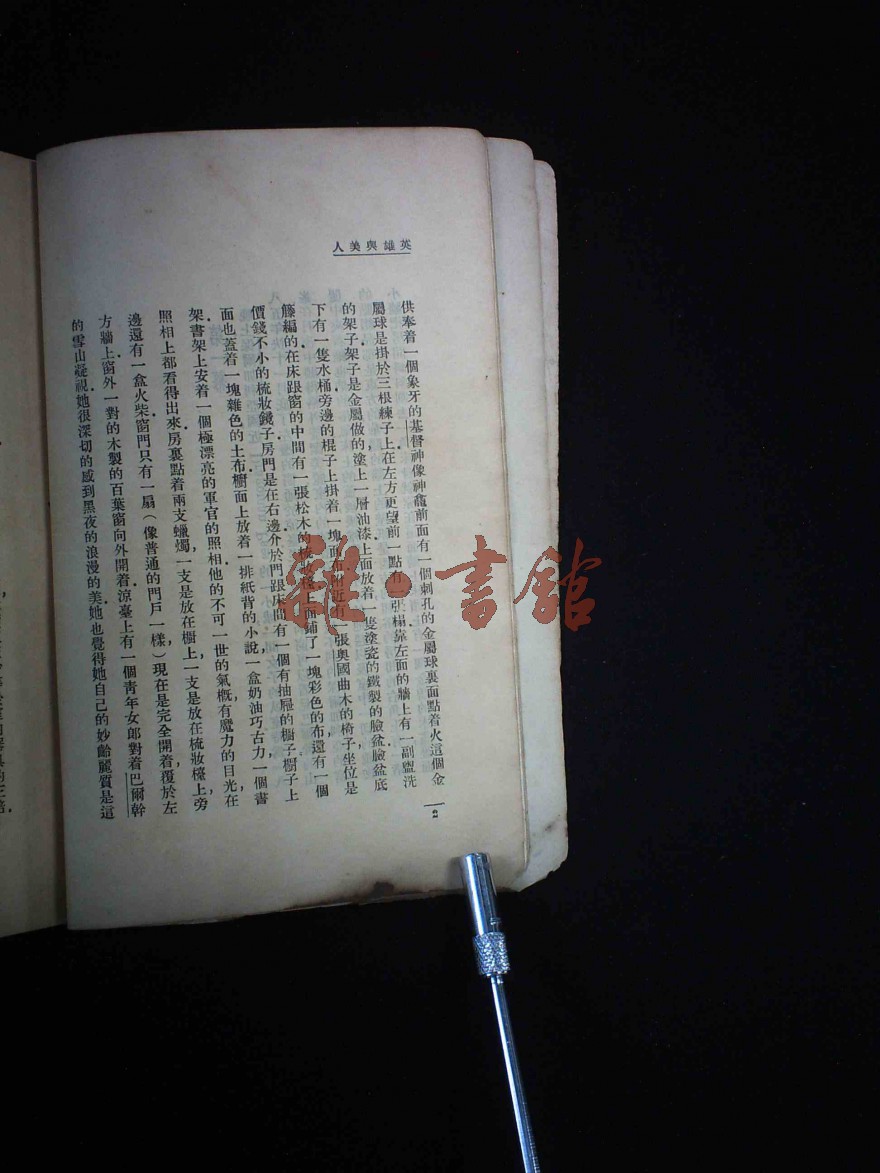 英雄與美人
供奉着一個象牙的基督神像神龕前面有一個刺孔的金屬球裏面點着火這個金
屬球是掛於三根鍊子上在左方更望前一點有一張榻靠左面的牆上有一副盥洗
的架子架子是金屬做的塗上一層油漆上面放着一隻塗瓷的鐵製的臉盆臉盆底
下有一隻水桶旁邊的棍子上掛着一塊面巾附近有一張奧國曲木的椅子坐位是
籐編的在床跟窗的中間有一張松木的梳妝檯上面鋪了一塊彩色的布還有一個
價錢不小的梳妝鏡子房門是在右邊介於門跟床間有一個有抽屜的櫥子櫥子上
面也蓋着一塊雜色的土布櫥面上放着一排紙背的小說一盒奶油巧古力一個書
架書架上安着一個極漂亮的軍官的照相他的不可一世的氣概有魔力的目光在
照相上都看得出來房裏點着兩支蠟燭一支是放在櫥上一支是放在梳妝檯上旁
邊還有一盒火柴窗門只有一扇（像普通的門戶一樣）現在是完全開着覆於左
方牆上窗外一對的木製的百葉窗向外開着涼臺上有一個靑年女郎對着巴爾幹
的雪山凝視她很深切的感到黑夜的浪漫的美她也覺得她自己的妙齡麗質是這
雜·書館